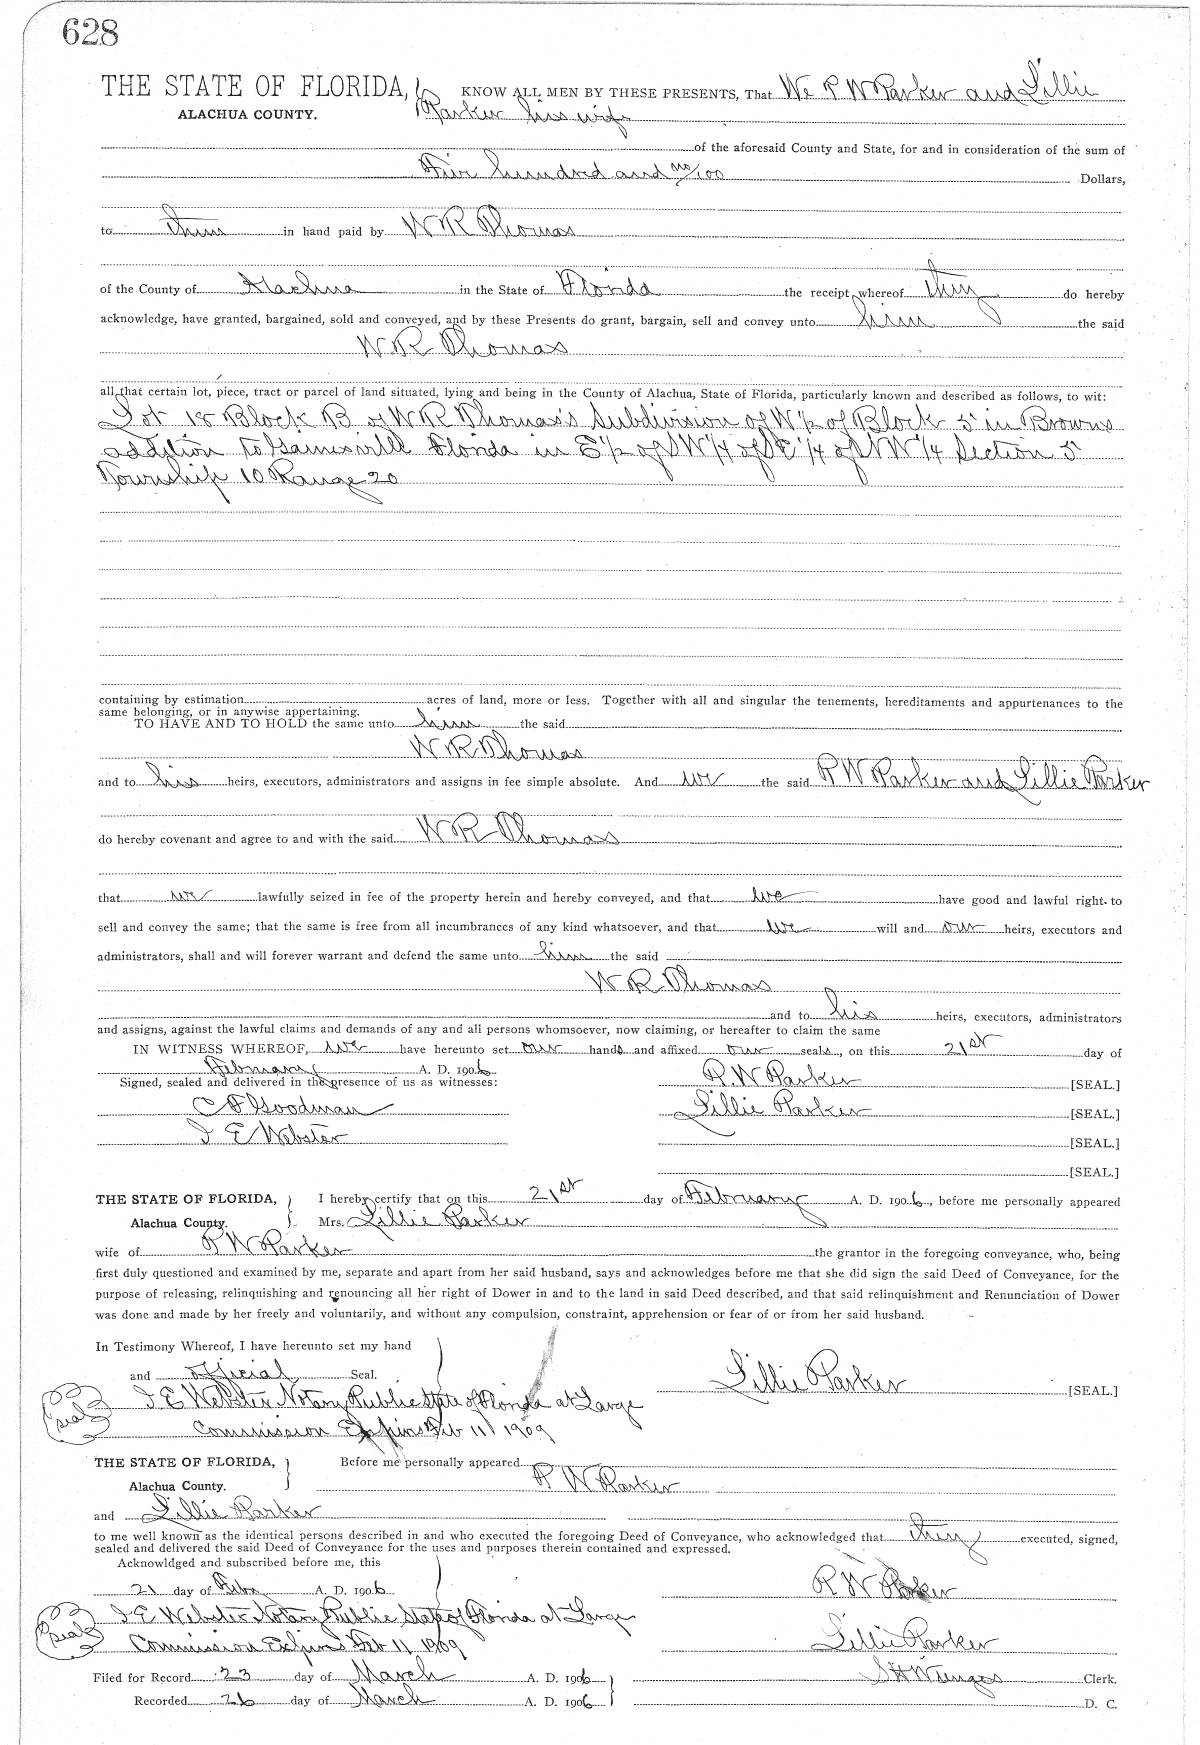 628
THE STATE OF FLORIDA, KNOW ALL MEN BY THESE PRESENTS, That We R W Parker and Lillie
ALACHUA COUNTY. Parker his wife
of the aforesaid County and State, for and in consideration of the sum of
Five hundred and no/100 Dollars,
to them in hand paid by W R Thomas
of the County of Alachua in the State of Florida the receipt whereof they do hereby
acknowledge, have granted, bargained, sold and conveyed, and by these Presents do grant, bargain, sell and convey unto him the said
W R Thomas
all that certain lot, piece, tract or parcel of land situated, lying and being in the County of Alachua, State of Florida, particularly known and described as follows, to wit:
Lot 18 Block B of W R Thomas's Subdivision of W 1/2 of Block 5 in Browns
addition to Gainesville Florida in E 1/2 of SW 1/4 of SE 1/4 of NW 1/4 Section 5
Township 10 Range 20
containing by estimation acres of land, more or less. Together with all and singular the tenements, hereditaments and appurtenances to the
same belonging, or in anywise appertaining.
TO HAVE AND TO HOLD the same unto him the said
W R Thomas
and to his heirs, executors, administrators and assigns in fee simple absolute. And we the said R W Parker and Lillie Parker
do hereby covenant and agree to and with the said W R Thomas
that we lawfully seized in fee of the property herein and hereby conveyed, and that we have good and lawful right to
sell and convey the same; that the same is free from all incumbrances of any kind whatsoever, and that we will and our heirs, executors and
administrators, shall and will forever warrant and defend the same unto him the said
W R Thomas
and to his heirs, executors, administrators
and assigns, against the lawful claims and demands of any and all persons whomsoever, now claiming, or hereafter to claim the same
IN WITNESS WHEREOF, we have hereunto set our hands and affixed our seals, on this 21st day of
February A. D. 1906
Signed, sealed and delivered in the presence of us as witnesses: R. W Parker [SEAL.]
C F Goodman Lillie Parker [SEAL.]
I E Webster [SEAL.]
[SEAL.]
THE STATE OF FLORIDA, I hereby certify that on this 21st day of February A. D. 1906, before me personally appeared
Alachua County. Mrs. Lillie Parker
wife of R W Parker the grantor in the foregoing conveyance, who, being
first duly questioned and examined by me, separate and apart from her said husband, says and acknowledges before me that she did sign the said Deed of Conveyance, for the
purpose of releasing, relinquishing and renouncing all her right of Dower in and to the land in said Deed described, and that said relinquishment and Renunciation of Dower
was done and made by her freely and voluntarily, and without any compulsion, constraint, apprehension or fear of or from her said husband.
In Testimony Whereof, I have hereunto set my hand
and official Seal. Lillie Parker [SEAL.]
seal I E Webster Notary Public State of Florida at Large
Commission Expires Feb 11 1909
THE STATE OF FLORIDA, Before me personally appeared
Alachua County. R W Parker
and Lillie Parker
to me well known as the identical persons described in and who executed the foregoing Deed of Conveyance, who acknowledged that they executed, signed,
sealed and delivered the said Deed of Conveyance for the uses and purposes therein contained and expressed.
Acknowldged and subscribed before me, this
21 day of Feby A. D. 1906 R W Parker
seal I E Webster Notary Public State of Florida at Large
Commission Expires Feb 11 1909 Lillie Parker
Filed for Record 23 day of March A. D. 1906 S H Wienges Clerk.
Recorded 26 day of March A. D. 1906 D. C.